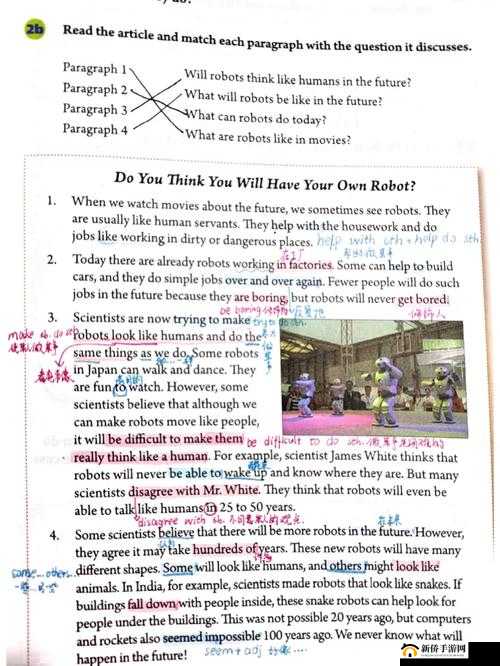 2b Read the article and match each paragraph with the question it discusses.
Paragraph 1 Will robots think like humans in the future?
Paragraph 2 What will robots be like in the future?
Paragraph 3 What can robots do today?
Paragraph 4 What are robots like in movies?
Do You Think You Will Have Your Own Robot?
1. When we watch movies about the future, we sometimes see robots. They
are usually like human servants. They help with the housework and do
jobs like working in dirty or dangerous places. help with sth = help do sth.
2. Today there are already robots working in factories. Some can help to build
cars, and they do simple jobs over and over again. Fewer people will do such
jobs in the future because they are boring, but robots will never get bored.
3. Scientists are now trying to make try to do sth.
robots look like humans and do the
same things as we do. Some robots
in Japan can walk and dance. They
are fun to watch. However, some
scientists believe that although we
can make robots move like people,
it will be difficult to make them be difficult to do sth.
really think like a human. For example, scientist James White thinks that
robots will never be able to wake up and know where they are. But many
scientists disagree with Mr. White. They think that robots will even be
able to talk like humans in 25 to 50 years.
disagree with sb.
4. Some scientists believe that there will be more robots in the future. However,
they agree it may take hundreds of years. These new robots will have many
some... others... different shapes. Some will look like humans, and others might look like
animals. In India, for example, scientists made robots that look like snakes. If
buildings fall down with people inside, these snake robots can help look for
people under the buildings. This was not possible 20 years ago, but computers
and rockets also seemed impossible 100 years ago. We never know what will
happen in the future! seem + adj 好像...
新侨手游网